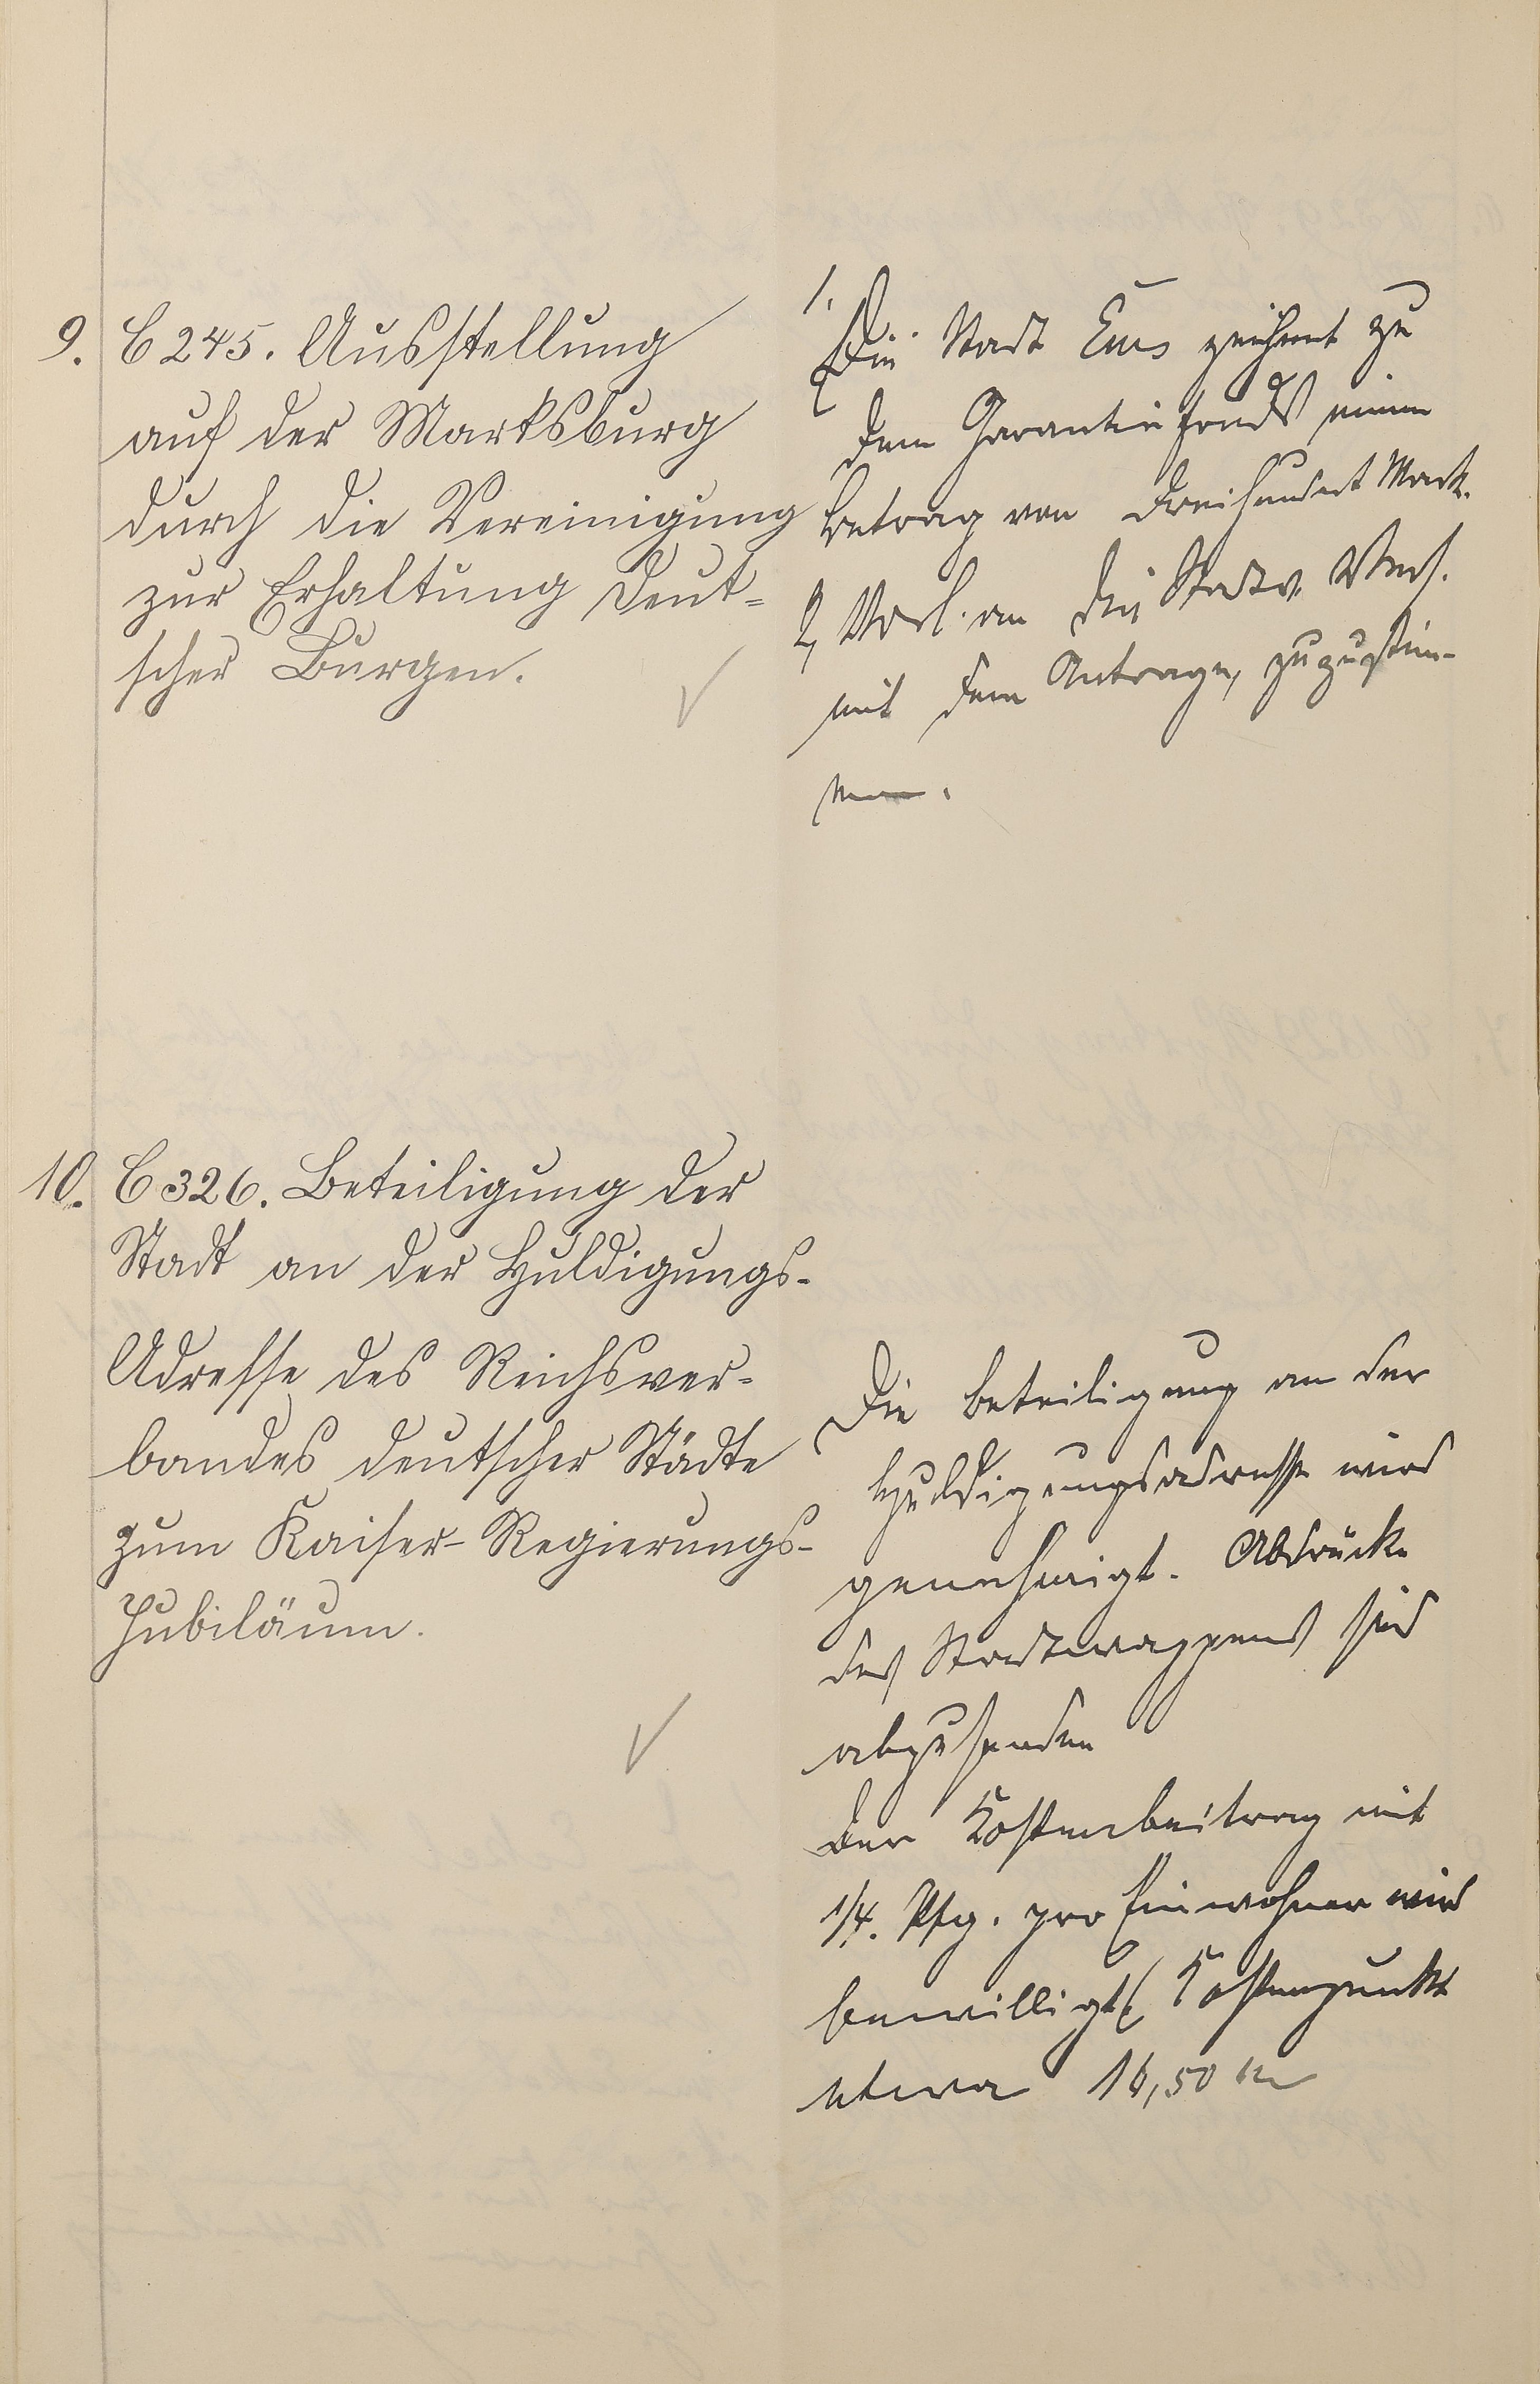 9. C 245. Ausstellung
auf der Marksburg
durch die Vereinigung
zur Erhaltung deut-
scher Burgen.
1. Die Stadt Ems zeichnet zu
dem Garantiefonds einen
Betrag von dreihundert Mark.
2, Vorl. an die Stadtv. Vers.
mit dem Antrage, zuzustim-
men.
10. C 326. Beteiligung der
Stadt an der Huldigungs-
Adresse des Reichsver-
bandes deutscher Städte
zum Kaiser-Regierungs-
Jubiläum.
Die Beteiligung an der
Huldigungsadresse wird
genehmigt. Abdrücke
des Stadtwappens sind
abzusenden
Der Kostenbeitrag mit
1/4. Pfg. pro Einwohner wird
bewilligt Kostenpunkt
etwa 16,50 M